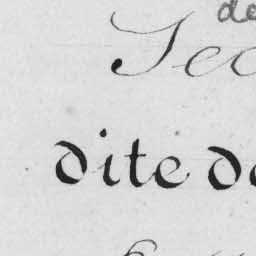 de
Sec
dite de